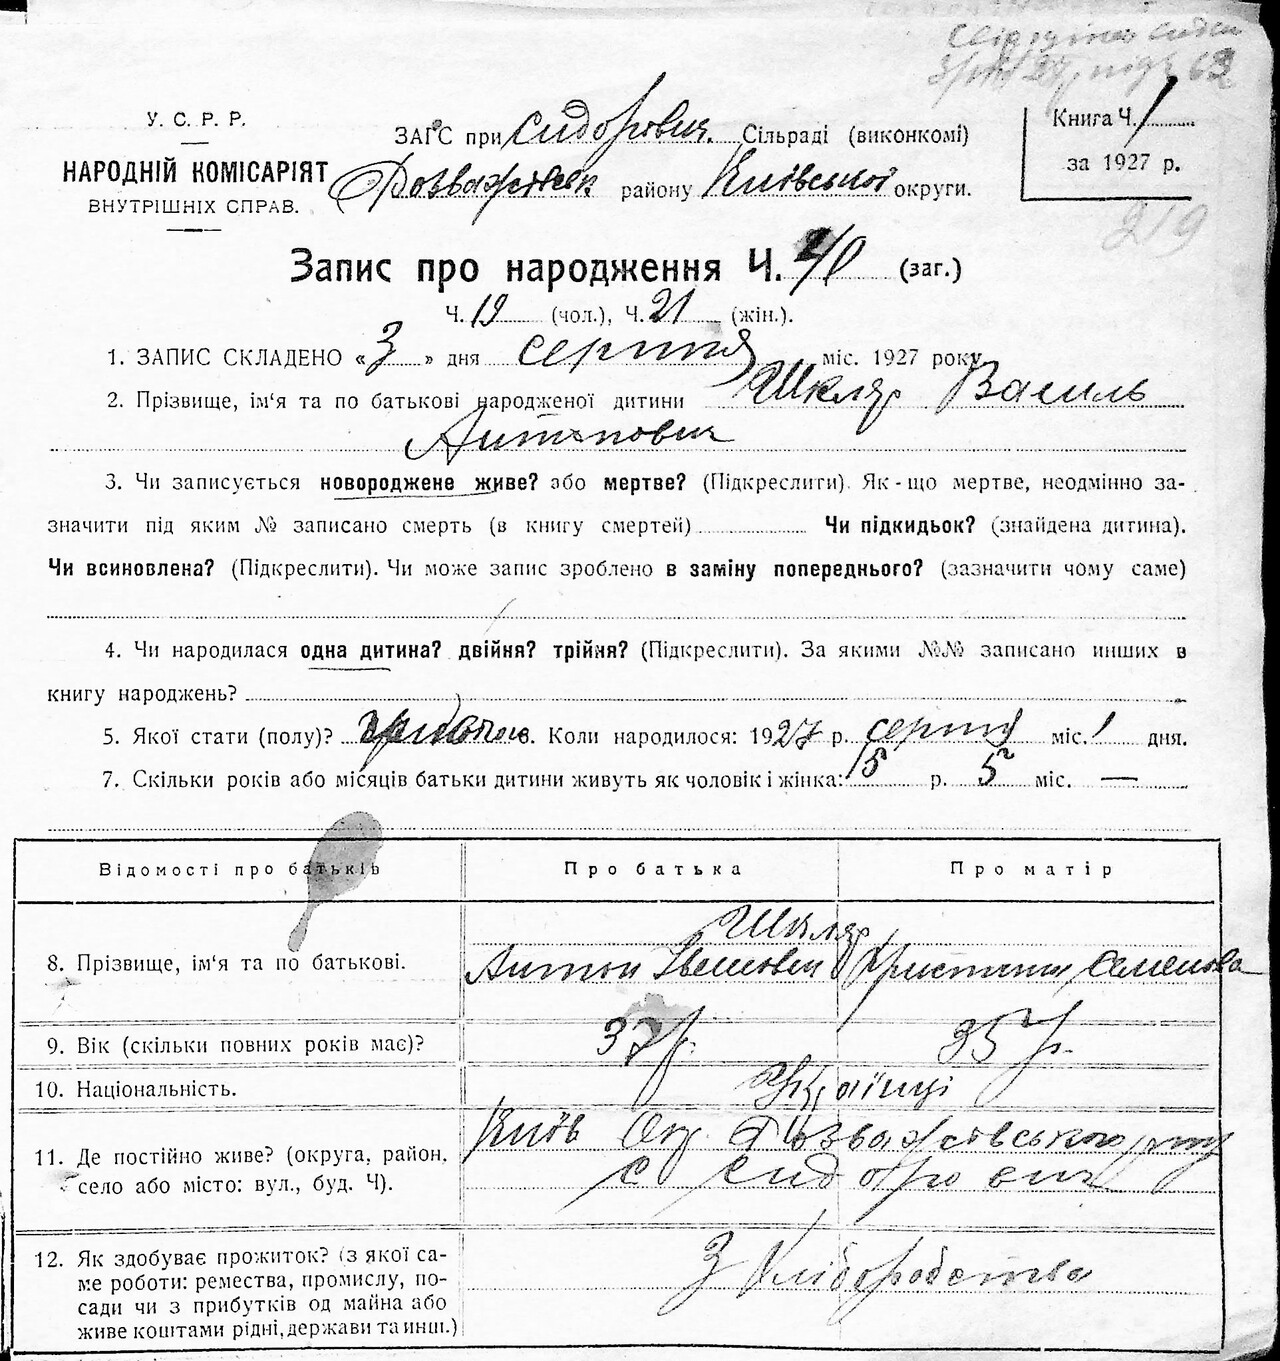 У. С. Р. Р.
НАРОДНІЙ КОМІСАРІЯТ
ВНУТРІШНІХ СПРАВ.
ЗАГС при Сидорович. Сільраді (виконкомі)
Розважівськ району Київської округи.
Книга Ч. 1
за 1927 р.
219
Запис про народження Ч. 40 (заг.)
Ч. 19 (чол.), Ч. 21 (жін.).
1. ЗАПИС СКЛАДЕНО « 3 » дня серпня міс. 1927 року
2. Прізвище, ім'я та по батькові народженої дитини Шкляр Василь
Антонович
3. Чи записується новороджене живе? або мертве? (Підкреслити). Як-що мертве, неодмінно за-
значити під яким № записано смерть (в книгу смертей) Чи підкидьок? (знайдена дитина).
Чи всиновлена? (Підкреслити). Чи може запис зроблено в заміну попереднього? (зазначити чому саме)
4. Чи народилася одна дитина? двійня? трійня? (Підкреслити). За якими №№ записано инших в
книгу народжень?
5. Якої стати (полу)? Коли народилося: 1927 р. серпня міс. 1 дня.
7. Скільки років або місяців батьки дитини живуть як чоловік і жінка: 15 р. 5 міс. —
Відомості про батьків
Про батька
Про матір
Шкляр
8. Прізвище, ім'я та по батькові.
Антон Христина Семенова
9. Вік (скільки повних років має)?
37 р. 35 р.
10. Національність.
Українці
11. Де постійно живе? (округа, район,
село або місто: вул., буд. Ч).
Київ Окр. Розважівського р-ну
с Сидорович
12. Як здобуває прожиток? (з якої са-
ме роботи: ремества, промислу, по-
сади чи з прибутків од майна або
живе коштами рідні, держави та инш.)
З хліборобства